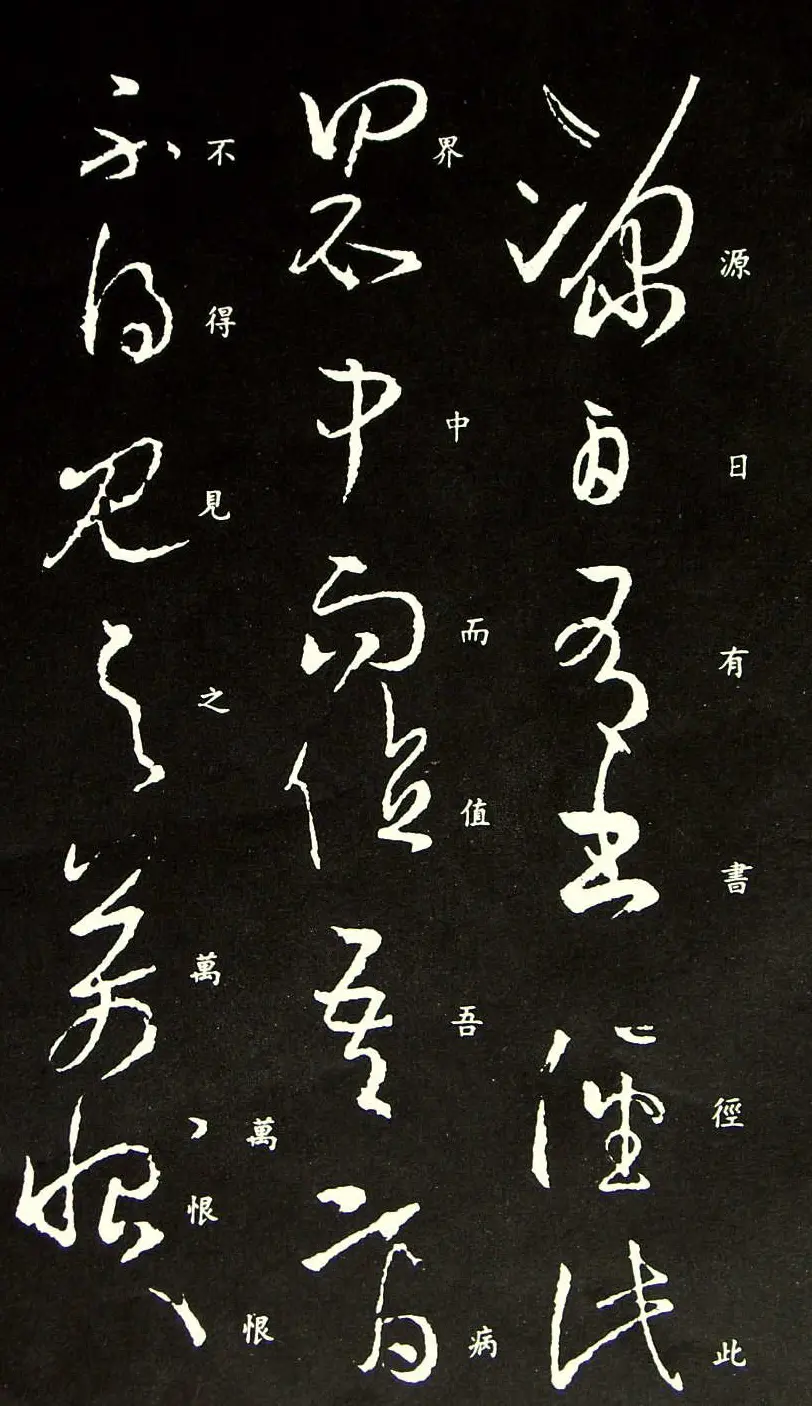 源日有書徑此
界中而值吾病
不得見之萬萬恨恨